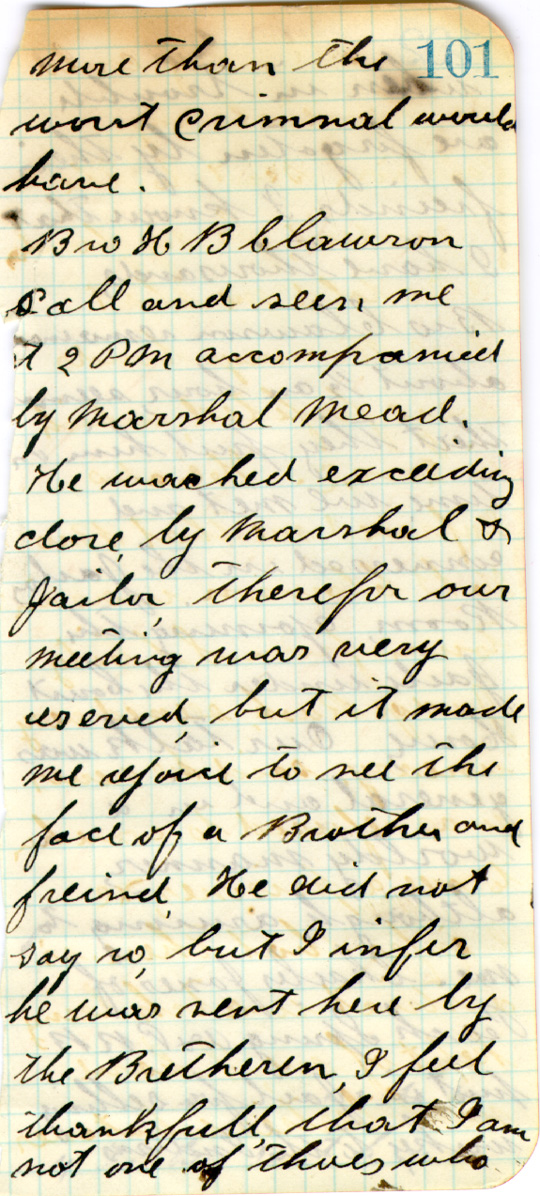 101
more than the
worst Criminal would
have.
Bro H B Clawson
Call and seen me
at 2 PM accompanied
by Marshal Mead.
He wached exceeding
close, by Marshal &
Jailor, therefor our
meeting was very
reserved, but it made
me rejoice to see the
face of a Brother and
freind, He did not
say so, but I infer
he was sent here by
the Bretheren, I feel
thankfull, that I am
not one of thoes who